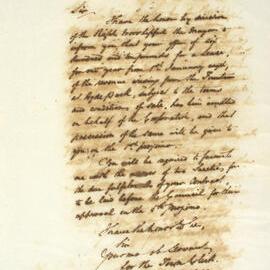 Sir
I have the honor by direction
of the Right Worshipful the Mayor to
inform you that your offer of Six
hundred and
for one year from the 1st January next,
of the revenue arising from the Fountain
at Hyde Park, subject to the terms
and conditions of sale, has been
on behalf of the Corporation, and that
possession of the same will be given to
you on the 1st proximo.
You will be required to furnish
me with the names of two Sureties, for
the due fulfilment of your contract,
to be laid before the Council for their
approval on the proximo
I have the honor to be,
Sir
Your Servant
for the Town Clerk